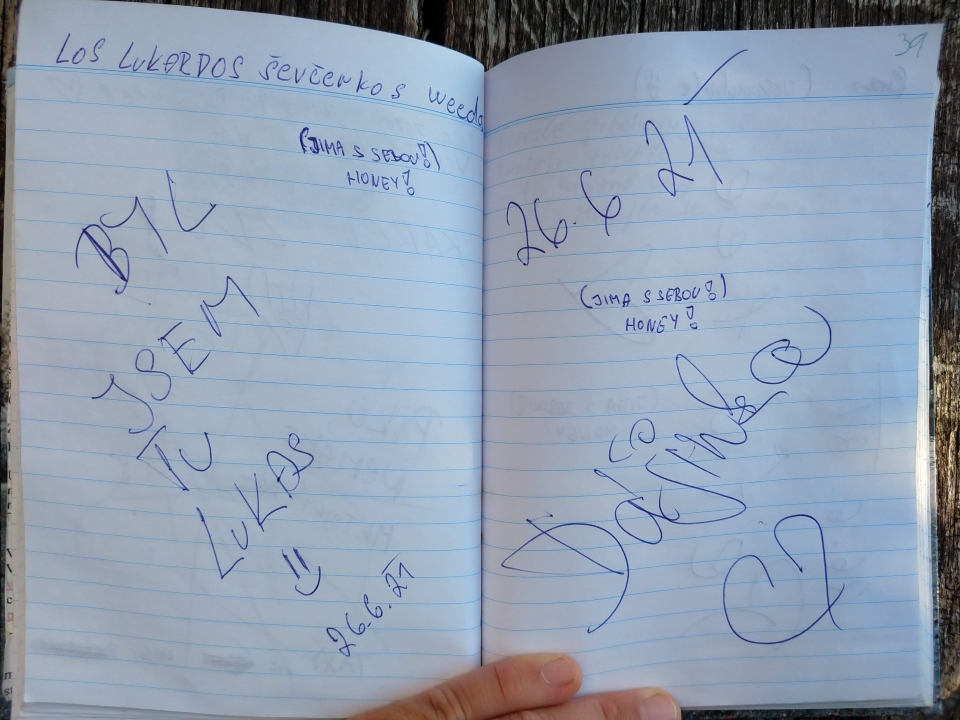 LOS LUKARDOS ŠEVČENKOS weedo
(JIMA S SEBOU!)
HONEY!
BYL
JSEM
TU
LUKAS
26.6.21
39
26.6 21
(JIMA S SEBOU!)
HONEY!